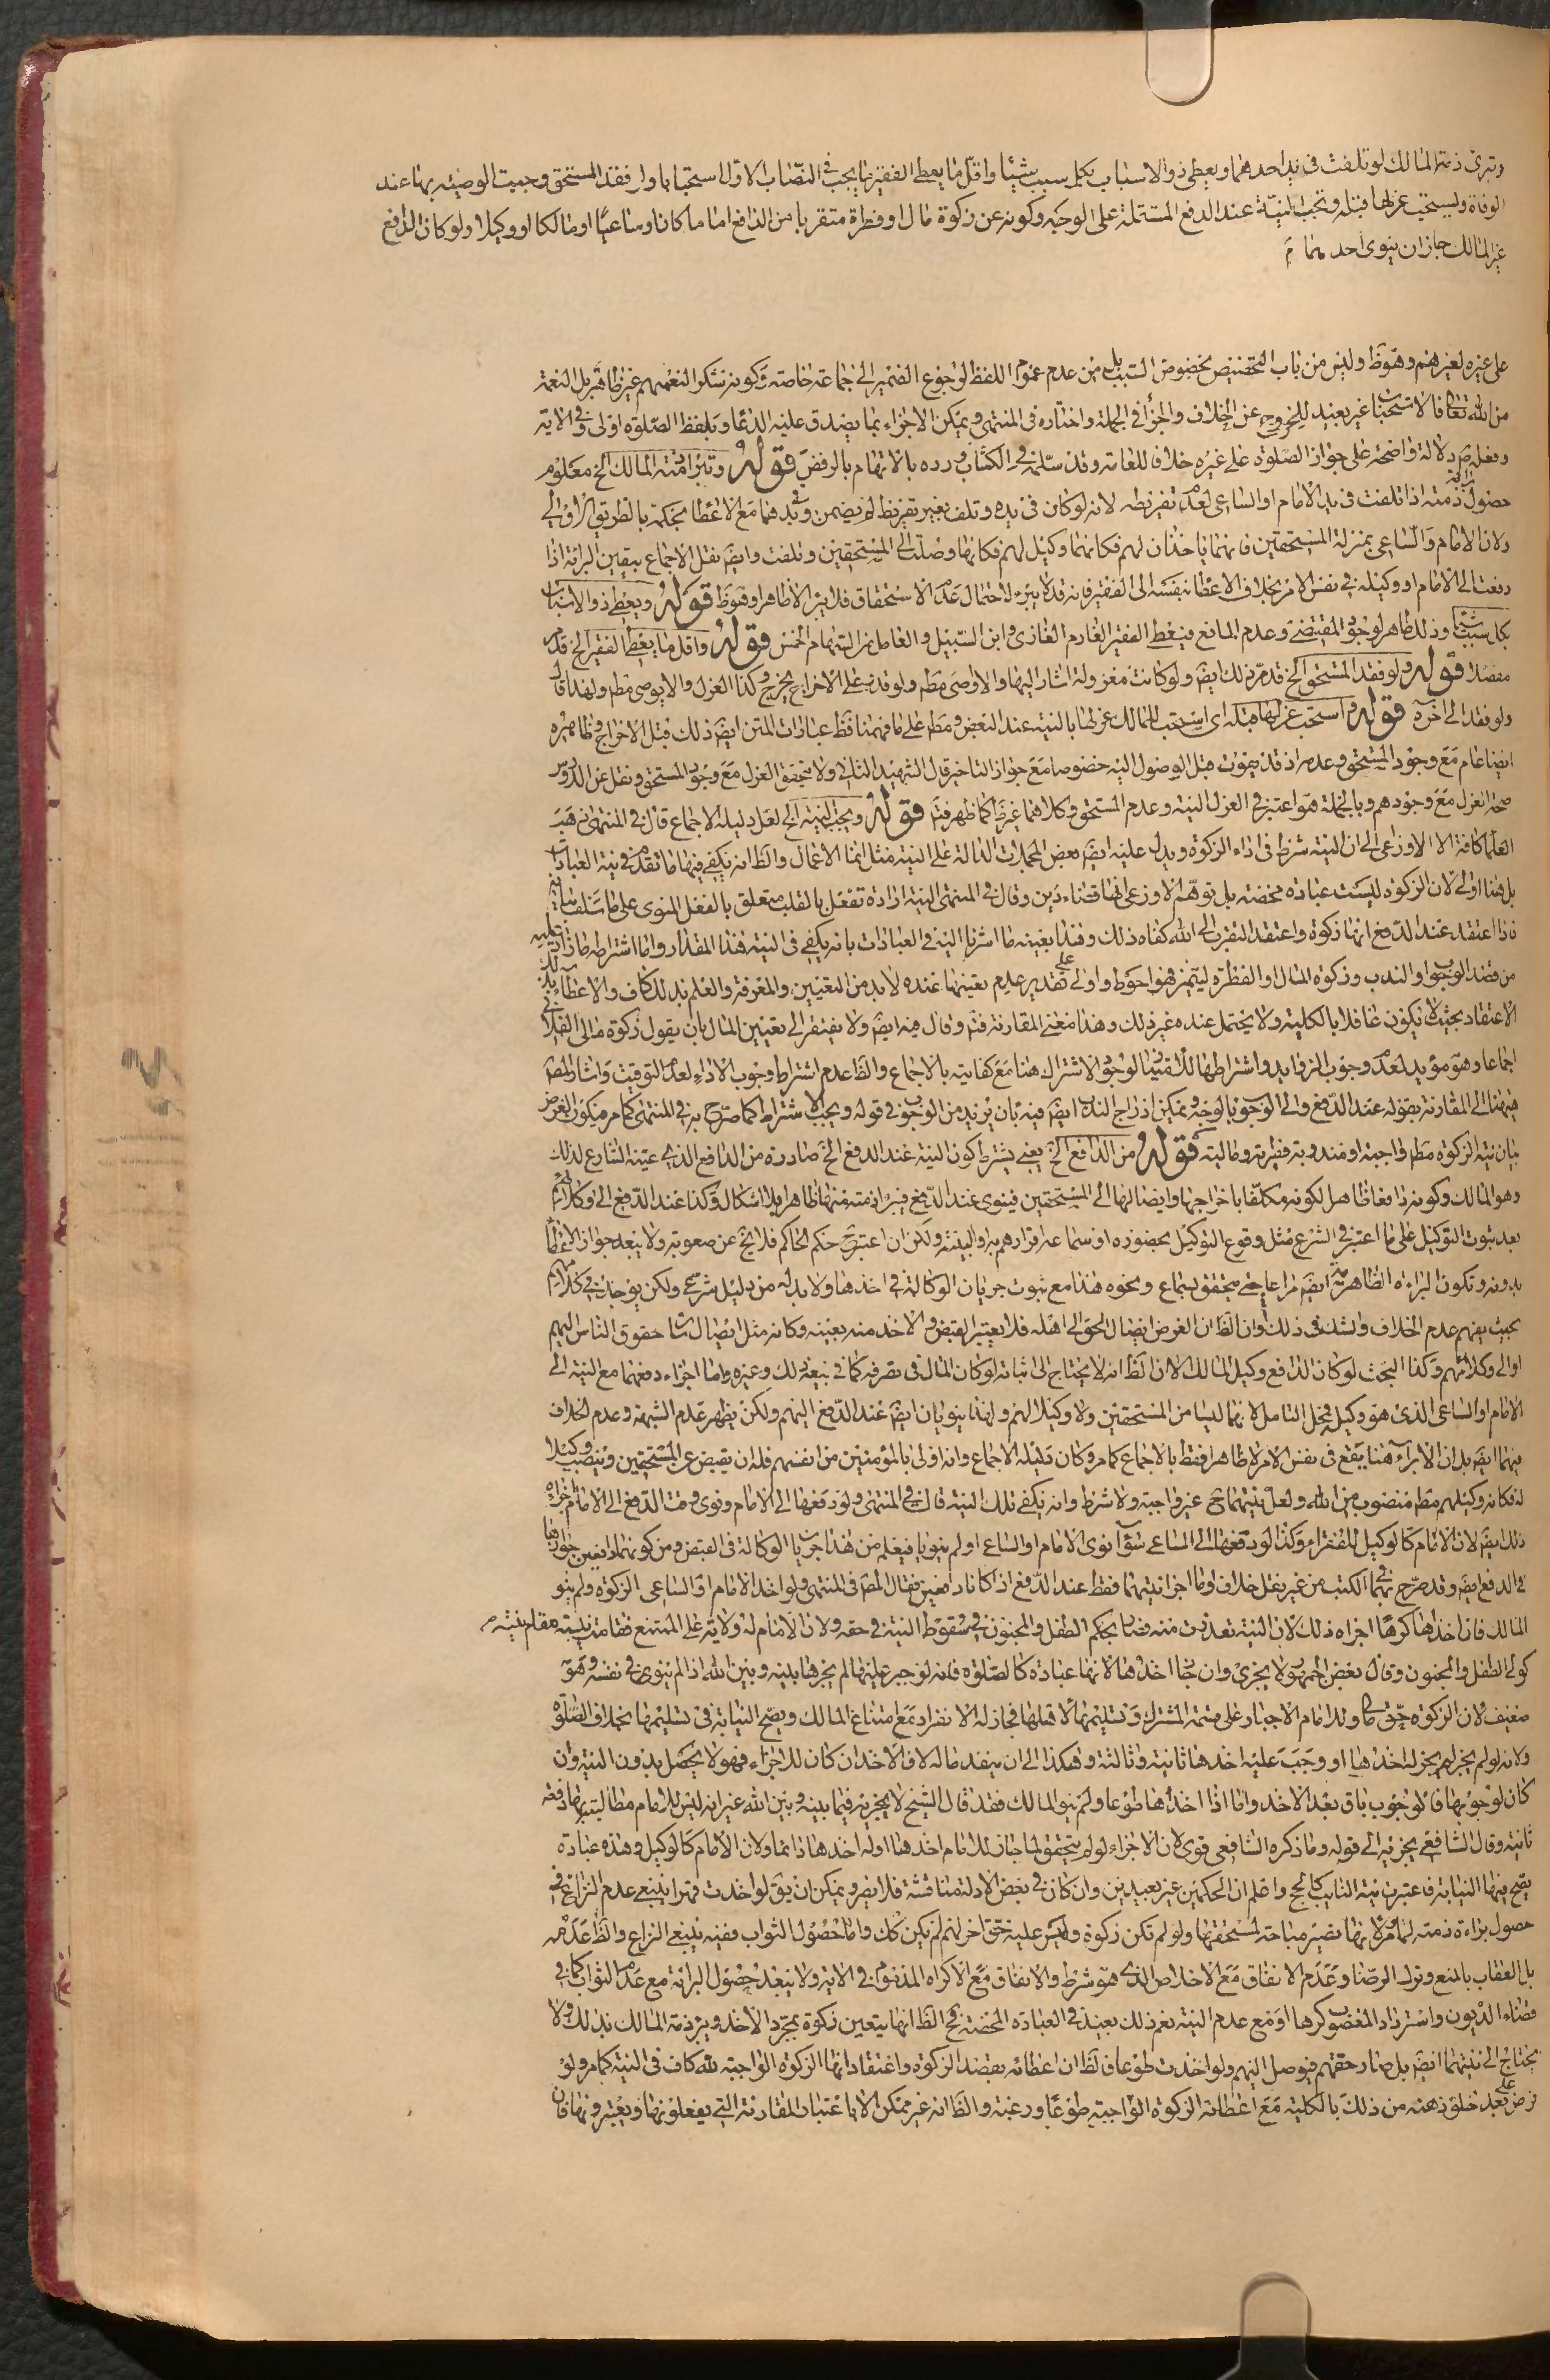 وتبرئ ذمة المالك لو تلفت في يد احدهما ويعطى ذو الاسباب بكل سبب شيئا واقل ما يعطى الفقير ما يجب في النصاب الاول استحبابا ولو فقد المستحق وجبت الوصية بها عند
الوفاة ويستحب عزلها قبله وتجب النية عند الدفع المشتملة على الوجه وكونه عن زكوة مال او فطرة متقربا من الدافع اماما كان او ساعيا او مالكا او وكيلا ولو كان الدافع
غير المالك جاز ان ينوى احدهما
على غيره لغيرهم وهو ظ وليس من باب التخصيص بخصوص السبب بل من عدم عموم اللفظ لرجوع الضمير الى جماعة خاصة وكونه تشكر النعمهم غير ظاهر بل النعمة
من الله تعالى فالاستحباب غير بعيد للخروج عن الخلاف والجزأ في الجملة واختاره في المنتهى ويمكن الاجزاء بما يصدق عليه الدعاء وبلفظ الصلوة اولى وفي الاية
وفعله ص دلالة واضحة على جواز الصلوة على غيره خلاف للعامة وقد سلمه في الكشاف ورده بالاتهام بالرفض قوله وتبرأ ذمة المالك الخ معلوم
حصول براءة ذمته اذا تلفت في يد الامام او الساعى لعدم تفريطه لانه لو كان في يده وتلف بغير تفريط لم يضمن وفي يدهما مع الاعطاء بحكمه بالطريق الاولى
ولان الامام والساعى بمنزلة المستحقين فانهما ياخذان لهم فكانهما وكيل لهم فكانها وصلت الى المستحقين وتلفت وايضا نقل الاجماع بيقين البرائة اذا
دفعت الى الامام او وكيله في نفس الامر بخلاف الاعطاء بنفسه الى الفقير فانه قد لا يبرء لاحتمال عدم الاستحقاق فلا يبرأ الا ظاهرا وهو ظ قوله ويعطى ذو الاسباب
بكل سبب شيئا وذلك ظاهر لوجود المقتضى وعدم المانع فيعطى الفقير الغارم الغازى وابن السبيل والعامل من السهام الخمس قوله واقل ما يعطى الفقير الخ قد مر
مفصلا قوله ولو فقد المستحق الخ قد مر ذلك ايضا ولو كانت معزولة اشار اليها والا وصى مط ولو قدر على الاخراج يخرج وكذا العزل والا يوصى مط ولهذا قال
ولو فقد الى اخره قوله واستحب عزلها قبله اى استحب للمالك عزلها بالنية عند البعض ومط على ما فهمنا فظ عبارات المتن ايضا ذلك قبل الاخراج وظاهره
ايضا عام مع وجود المستحق وعدمه اذ قد يموت قبل الوصول اليه خصوصا مع جواز التاخير قال الشهيد الثانى ولا يتحقق العزل مع وجود المستحق ونقل عن الدروس
صحة العزل مع وجودهم وبالجملة هو اعتبر في العزل النية وعدم المستحق وكلاهما غير ظ كما ظهر فتم قوله وتجب النية الخ لعل دليله الاجماع قال في المنتهى ذهب
العلماء كافة الا الاوزاعى الى ان النية شرط في اداء الزكوة ويدل عليه ايضا بعض المجملات الدالة على النية مثل انما الاعمال والظ انه يكفى فيها ما تقدم في نية العبادات
بل هنا اولى لان الزكوة ليست عبادة محضة بل توهم الاوزاعى انها قضاء دين وقال في المنتهى النية ارادة تفعل بالقلب متعلق بالفعل المنوى على ما سلف بيانه
فاذا اعتقد عند الدفع انها زكوة واعتقد التقرب الى الله كفاه ذلك وهذا بعينه ما اشرنا اليه في العبادات بانه يكفى في النية هذا المقدار واما اشتراطه ما زاد عليه
من قصد الوجوب او الندب وزكوة المال او الفطرة ليتميز فهو احوط واولى على تقدير عدم تعينها عنده لا بد من التعيين والمعرفة والعلم بذلك كاف والاعطاء بذلك
الاعتقاد بحيث لا يكون غافلا بالكلية ولا يحتمل عنده غير ذلك وهذا معنى المقارنة فتم وقال فيه ايضا ولا يفتقر الى تعيين المال بان يقول زكوة مالى الفلانى
اجماعا وهو مؤيد لعدم وجوب الزايد واشتراطهما للتقييد لوجود الاشتراك هنا مع كفايته بالاجماع والظ عدم اشتراط وجوب الاداء لعدم التوقيت واشار المص
هنا الى المقارنة بقوله عند الدفع والى الوجوب بالوجه ويمكن ادراج الندب ايضا فيه بان يريد من الوجوب في قوله ويجب الاشتراط كما صرح به في المنتهى كما مر فيكون الغرض
بان نية الزكوة مط واجبة او مندوبة فطرته وماليته قوله من الدافع الخ يعنى يشترط كون النية عند الدفع الخ صادرة من الدافع الذى عينه الشارع لذلك
وهو المالك وكونه دافعا ظاهر لكونه مكلفا باخراجها وايصالها الى المستحقين فينوى عند الدفع فيبرأ ذمته منها ظاهرا بلا اشكال وكذا عند الدفع الى وكلائهم
بعد ثبوت التوكيل على ما اعتبر في الشرع مثل وقوع التوكيل بحضوره او سماعه اقرارهم به والبينة ولكن ان اعتبرت حكم الحاكم فلا يخ عن صعوبة ولا يبعد جواز الاعطاء
بدونه وتكون البراءة الظاهرية ايضا مراعاة حتى يتحقق بسماع ونحوه هذا مع ثبوت جريان الوكالة في اخذها ولا بد له من دليل شرعى ولكن يوجد في كلامهم
بحيث يفهم عدم الخلاف والشك في ذلك وان الظ ان الغرض ايصال الحق الى اهله فلا يعتبر القبض والاخذ منه بعينه وكانه مثل ايصال سائر حقوق الناس اليهم
او الى وكلائهم وكذا البحث لو كان الدافع وكيل المالك الا ان الظ انه لا يحتاج الى اثباته لو كان المال في تصرفه كما في بيعه ذلك وغيره واما اجزاء دفعهما مع النية الى
الامام او الساعى الذى هو وكيله فمحل التامل لانهما ليسا من المستحقين ولا وكيلا لهم ولهذا ينويان ايضا عند الدفع اليهم ولكن يظهر عدم الشبهة وعدم الخلاف
فيهما ايضا بل ان الابراء هنا يقع في نفس الامر لا ظاهرا فقط بالاجماع كما مر وكان دليله الاجماع وانه اولى بالمؤمنين من انفسهم فله ان يقبض عن المستحقين وينصب وكيلا
له فكانه وكيلهم مط منصوب من الله ولعل نيتهما ح غير واجبة ولا شرط وانه يكفى تلك النية قال في المنتهى ولو دفعها الى الامام ونوى وقت الدفع الى الامام اجزاه
ذلك ايضا لان الامام كالوكيل للفقراء وكذا لو دفعها الى الساعى سواء نوى الامام او الساعى او لم ينويا فيعلم من هذا جريان الوكالة في القبض ومن كونهما دافعين جوازها
في الدفع ايضا وقد صرح بهما في الكتب من غير نقل خلاف واما اجزاء نيتهما فقط عند الدفع اذا كانا دافعين فقال المص في المنتهى ولو اخذ الامام او الساعى الزكوة ولم ينو
المالك فان اخذها كرها اجزاه ذلك لان النية تعذرت منه فصار بحكم الطفل والمجنون في سقوط النية في حقه ولان الامام له ولاية على الممتنع فقامت نيته مقام نيته
كولى الطفل والمجنون وقال بعض الجمهور لا يجزئ وان جاز اخذها لانها عبادة كالصلوة فانه لو جبر عليها لم يجزها بينه وبين الله اذا لم ينوى في نفسه وهو
ضعيف لان الزكوة حق مالى وللامام الاجبار على قسمة المشترك وتسليمها لا قبلها فجاز له الانفراد مع امتناع المالك وتصح النيابة في تسليمها بخلاف الصلوة
ولانه لو لم يجز لم يجز له اخذها او وجب عليه اخذها ثانية وثالثة وهكذا الى ان ينفد ماله لان الاخذ ان كان للاجزاء فهو لا يحصل بدون النية وان
كان لوجوبها فالوجوب باق بعد الاخذ واما اذا اخذها طوعا ولم ينو المالك فقد قال الشيخ لا يجزيه فيما بينه وبين الله غير انه ليس للامام مطالبته بها دفعة
ثانية وقال الشافعى يجزئه الى قوله وما ذكره الشافعى قوى لان الاجزاء لو لم يتحقق لما جاز للامام اخذها او له اخذها دائما ولان الامام كالوكيل وهذه عبادة
يصح فيها النيابة فاعتبرت نية النايب كالحج واعلم ان الحكمين غير بعيدين وان كان في بعض الادلة مناقشة فلا يضر ويمكن ان يق لو اخذت قهرا ينبغى عدم النزاع في
حصول براءة ذمته لما مر لانها تصير مباحة لمستحقها ولو لم تكن زكوة وليس عليه حق اخر لهم لم يكن كك واما حصول الثواب ففيه ينبغى النزاع والظ عدمه
بل العقاب بالمنع وترك الرضا وعدم الانفاق مع الاخلاص الذى هو شرط والانفاق مع الاكراه المذموم في الاية ولا يبعد حصول البرائة مع عدم الثواب كما في
قضاء الديون واسترداد المغصوب كرها او مع عدم النية نعم ذلك بعيد في العبادة المحضة فح الظ انها يتعين زكوة بمجرد الاخذ ويبرء ذمة المالك بذلك ولا
يحتاج الى نيتهما ايضا بل صار حقهم فيوصل اليهم ولو اخذت طوعا فالظ ان اعطائه بقصد الزكوة واعتقاد انها الزكوة الواجبة لله كاف في النية كما مر ولو
فرض على بعد خلو ذهنه من ذلك بالكلية مع اعطائه الزكوة الواجبة طوعا ورغبة والظ انه غير ممكن الا باعتبار المقارنة التى يفعلونها ويعتبرونها فان